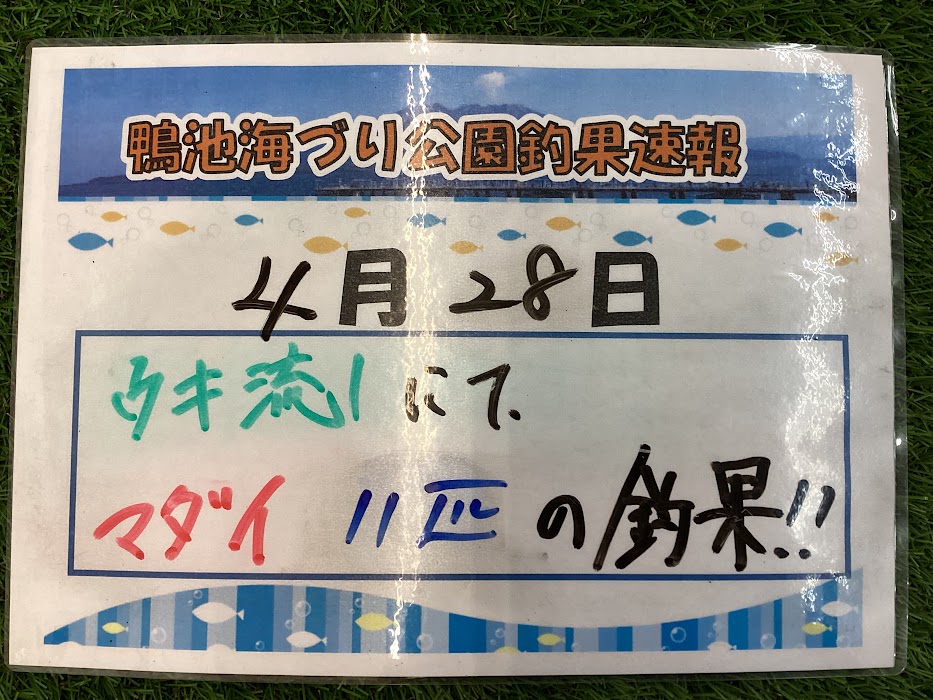 鴨池海づり公園釣果速報
4月28日
ウキ流しにて、
マダイ 11匹の釣果!!